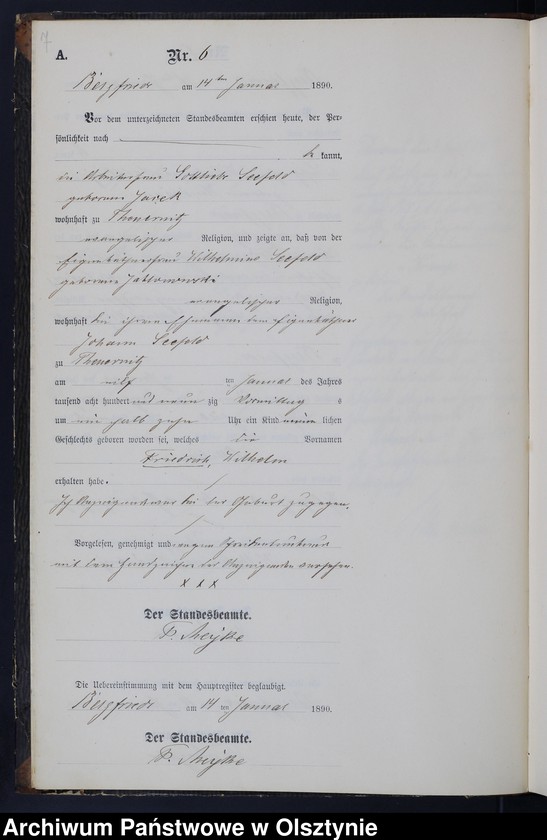 A. Nr. 6
Bergfriede am 14ten Januar 1890.
Vor dem unterzeichneten Standesbeamten erschien heute, der Per-
sönlichkeit nach
be kannt,
die Arbeiterfrau Gottliebe Seefeld
geborene Jarek
wohnhaft zu Theuernitz
evangelischer Religion, und zeigte an, daß von der
Eigenkäthnerfrau Wilhelmine Seefeld
geborene Jablonowski
evangelischer Religion,
wohnhaft bei ihrem Ehemanne dem Eigenkäthner
Johann Seefeld
zu Theuernitz
am elf ten Januar des Jahres
tausend acht hundert und neun zig Vormittag s
um ein halb zehn Uhr ein Kind männ lichen
Geschlechts geboren worden sei, welches die Vornamen
Friedrich, Wilhelm
erhalten habe.
Die Anzeigende war bei der Geburt zugegen.
Vorgelesen, genehmigt und wegen Schreibensunkunde
mit dem Handzeichen der Anzeigenden versehen.
x x x
Der Standesbeamte.
Die Uebereinstimmung mit dem Hauptregister beglaubigt.
Bergfriede am 14 ten Januar 1890.
Der Standesbeamte.
Archiwum Państwowe w Olsztynie